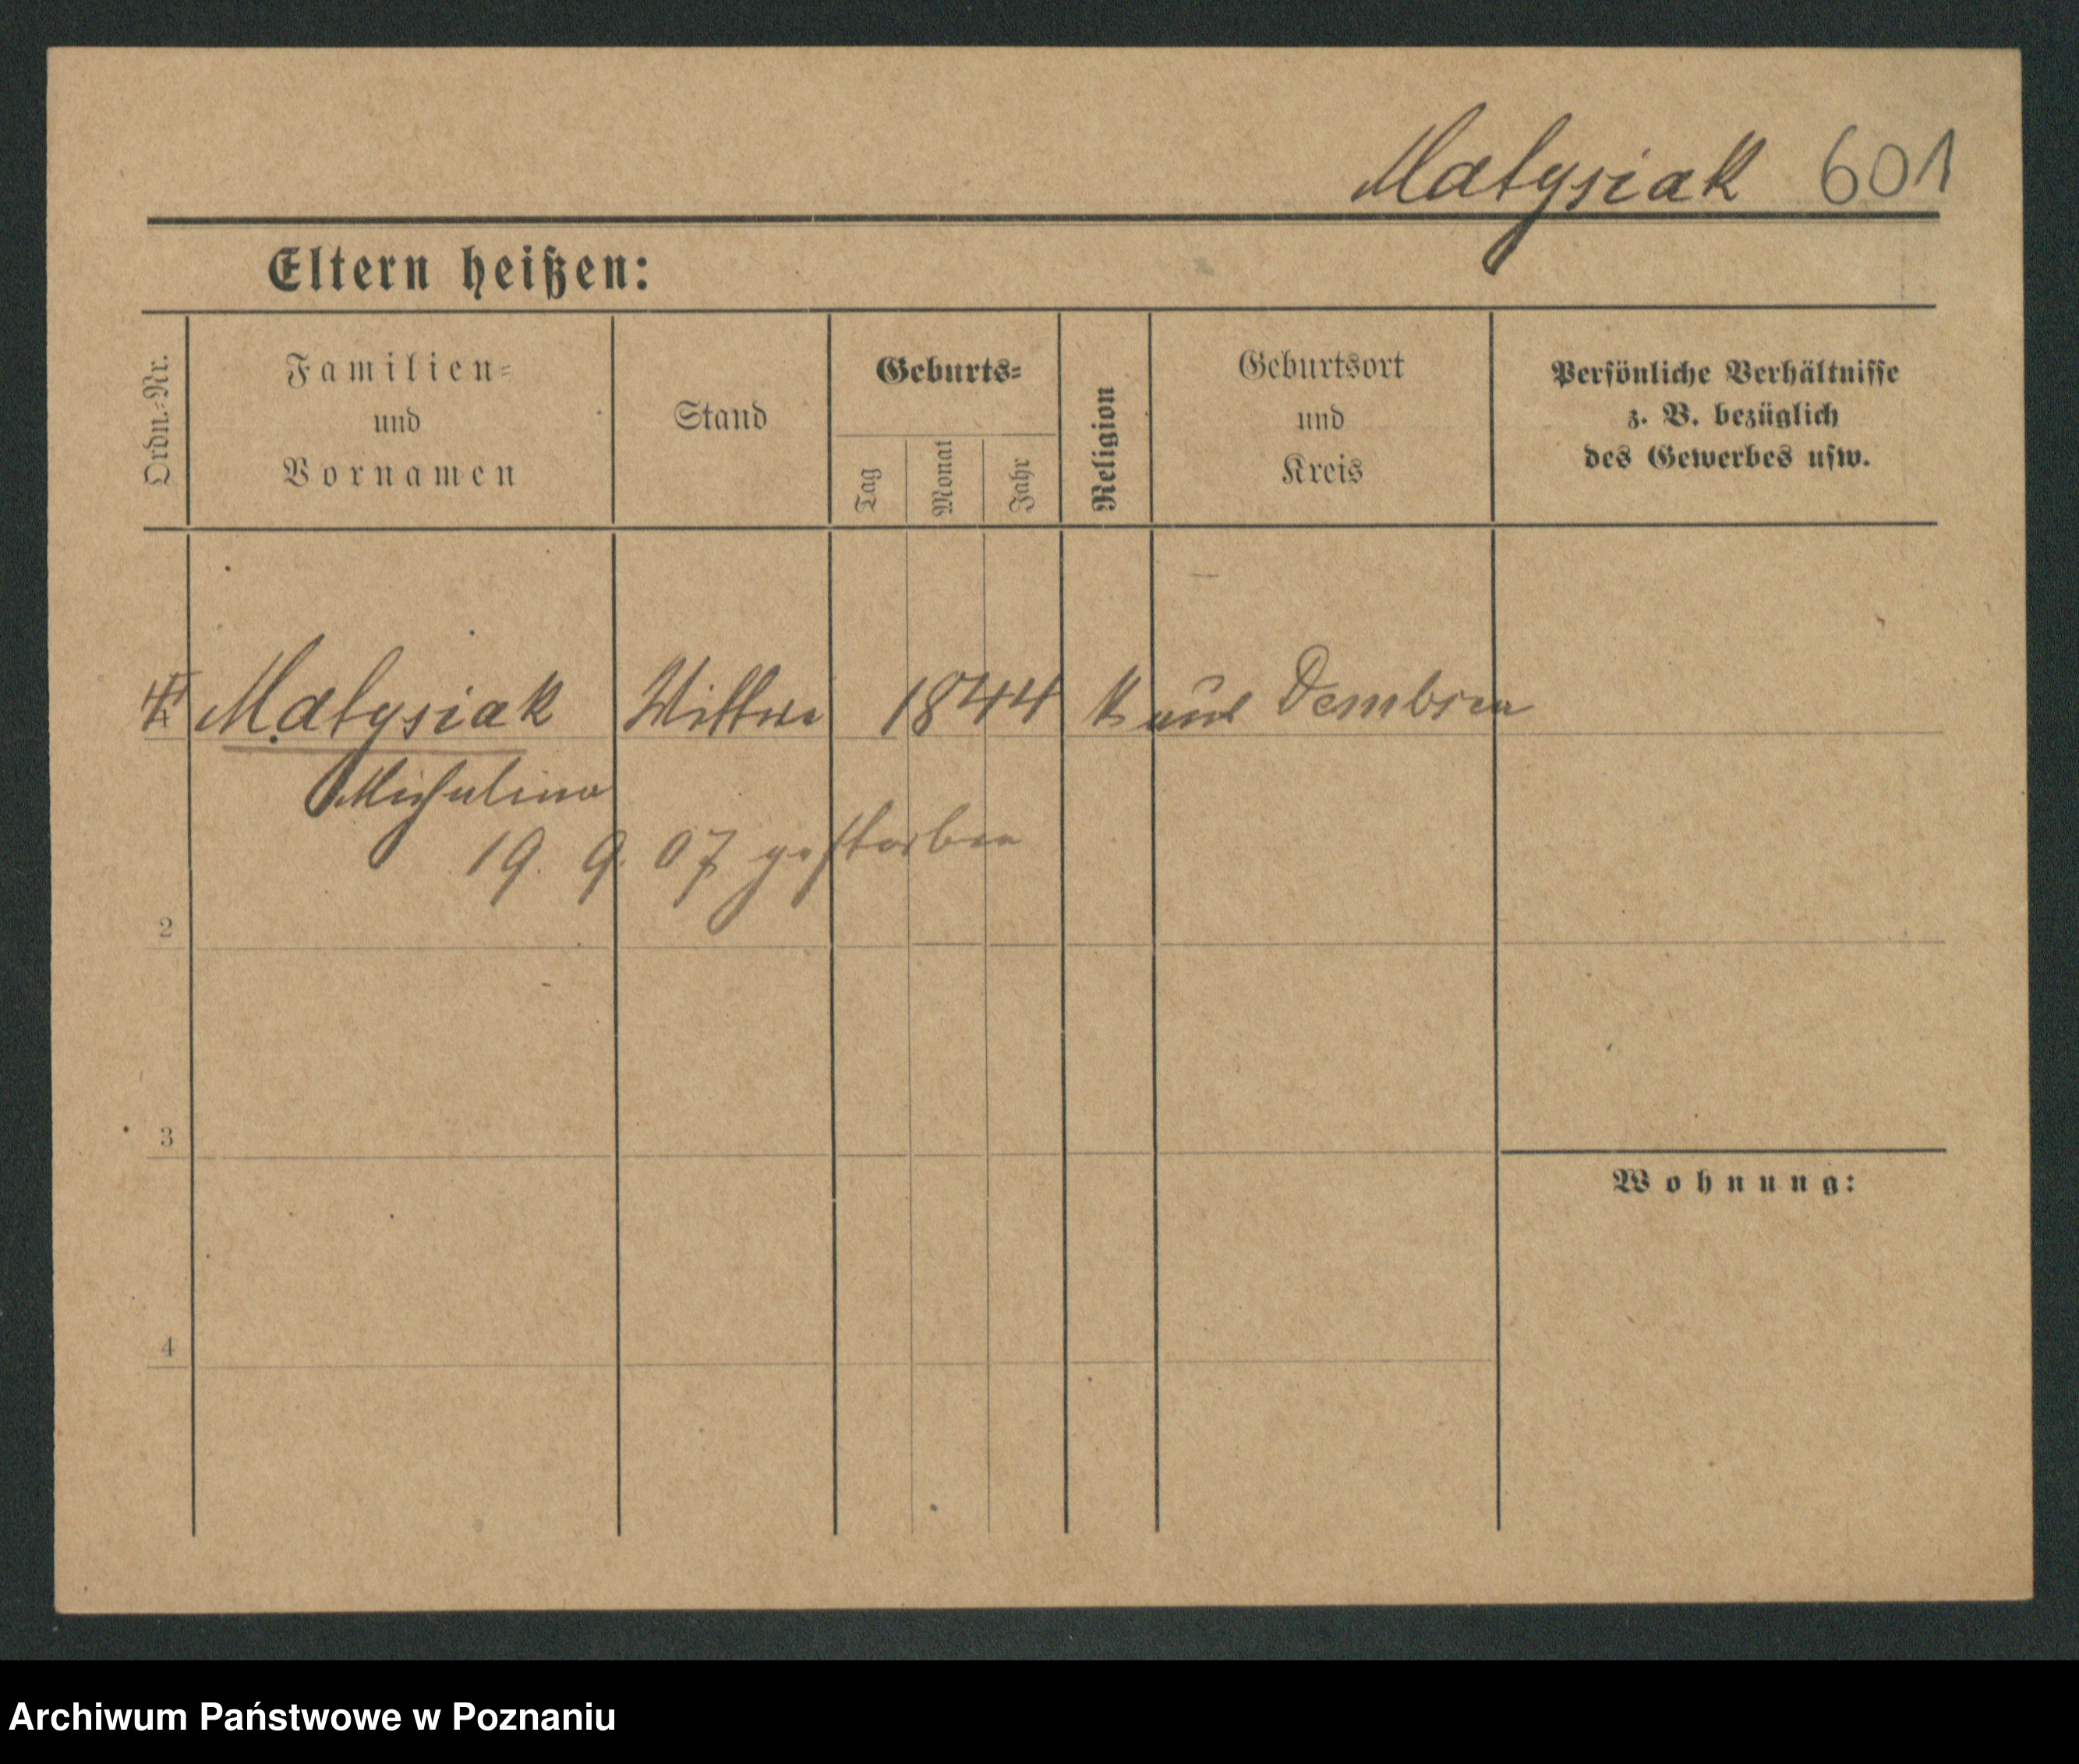 Matysiak 601
Eltern heißen:
Ordn.-Nr.
Familien-
und
Vornamen
Stand
Geburts-
Tag
Monat
Jahr
Religion
Geburtsort
und
Kreis
Persönliche Verhältnisse
z. B. bezüglich
des Gewerbes usw.
Matysiak Wittwe 1844 K aus Dembsen
Michalina
19. 9. 07 gestorben
2
3
Wohnung:
4
Archiwum Państwowe w Poznaniu